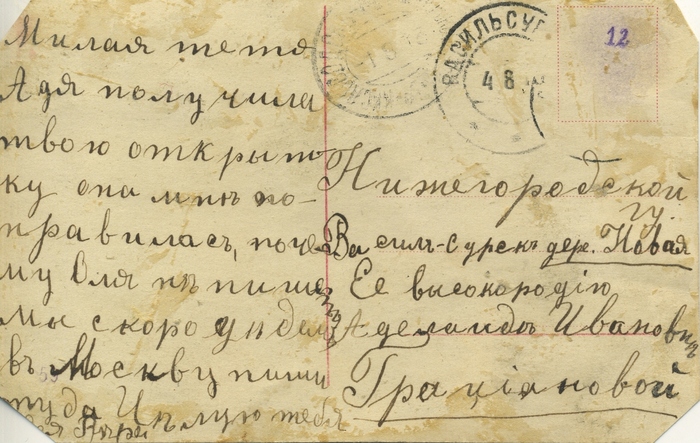 Милая тетя
Адя получила
твою открыт
ку она мнѣ по-
нравилась, поче
му Оля нѣ пише
мы скоро уѣдемъ
въ Москву пиши
туда Цѣлую тебя
ВАСИЛЬСУР
4 8
12
Нижегородской
гу.
Василь-Сурскъ дер. Новая
Ее высокородію
Аделаидѣ Ивановнѣ
Граціановой